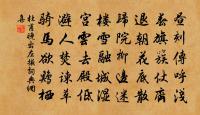 晝刻傳呼淺
春旗簇仗齊
退朝花底散
歸院柳邊迷
樓雪融城濕
宮雲去殿低
避人焚諫草
騎馬欲雞栖
杜甫晚出左掖詞典網
集